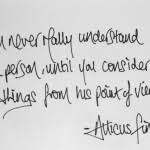 never really understand
person, until you consider
things from his point of vie
- Atticus Fin